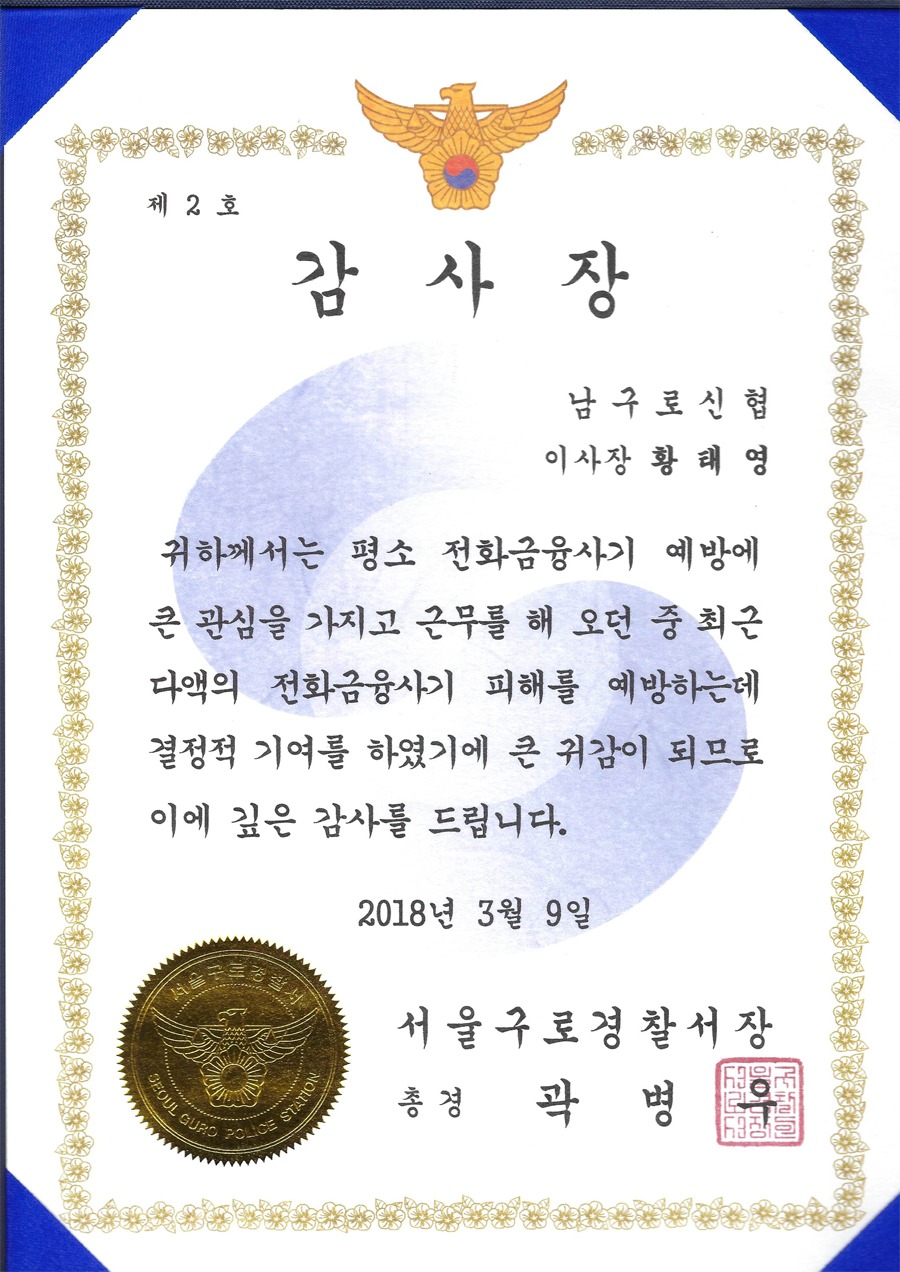 제 2 호
감 사 장
남구로신협
이사장 황태영
귀하께서는 평소 전화금융사기 예방에
큰 관심을 가지고 근무를 해 오던 중 최근
다액의 전화금융사기 피해를 예방하는데
결정적 기여를 하였기에 큰 귀감이 되므로
이에 깊은 감사를 드립니다.
2018년 3월 9일
서울구로경찰서
SEOUL GURO POLICE STATION
서울구로경찰서장
총경 곽 병 우